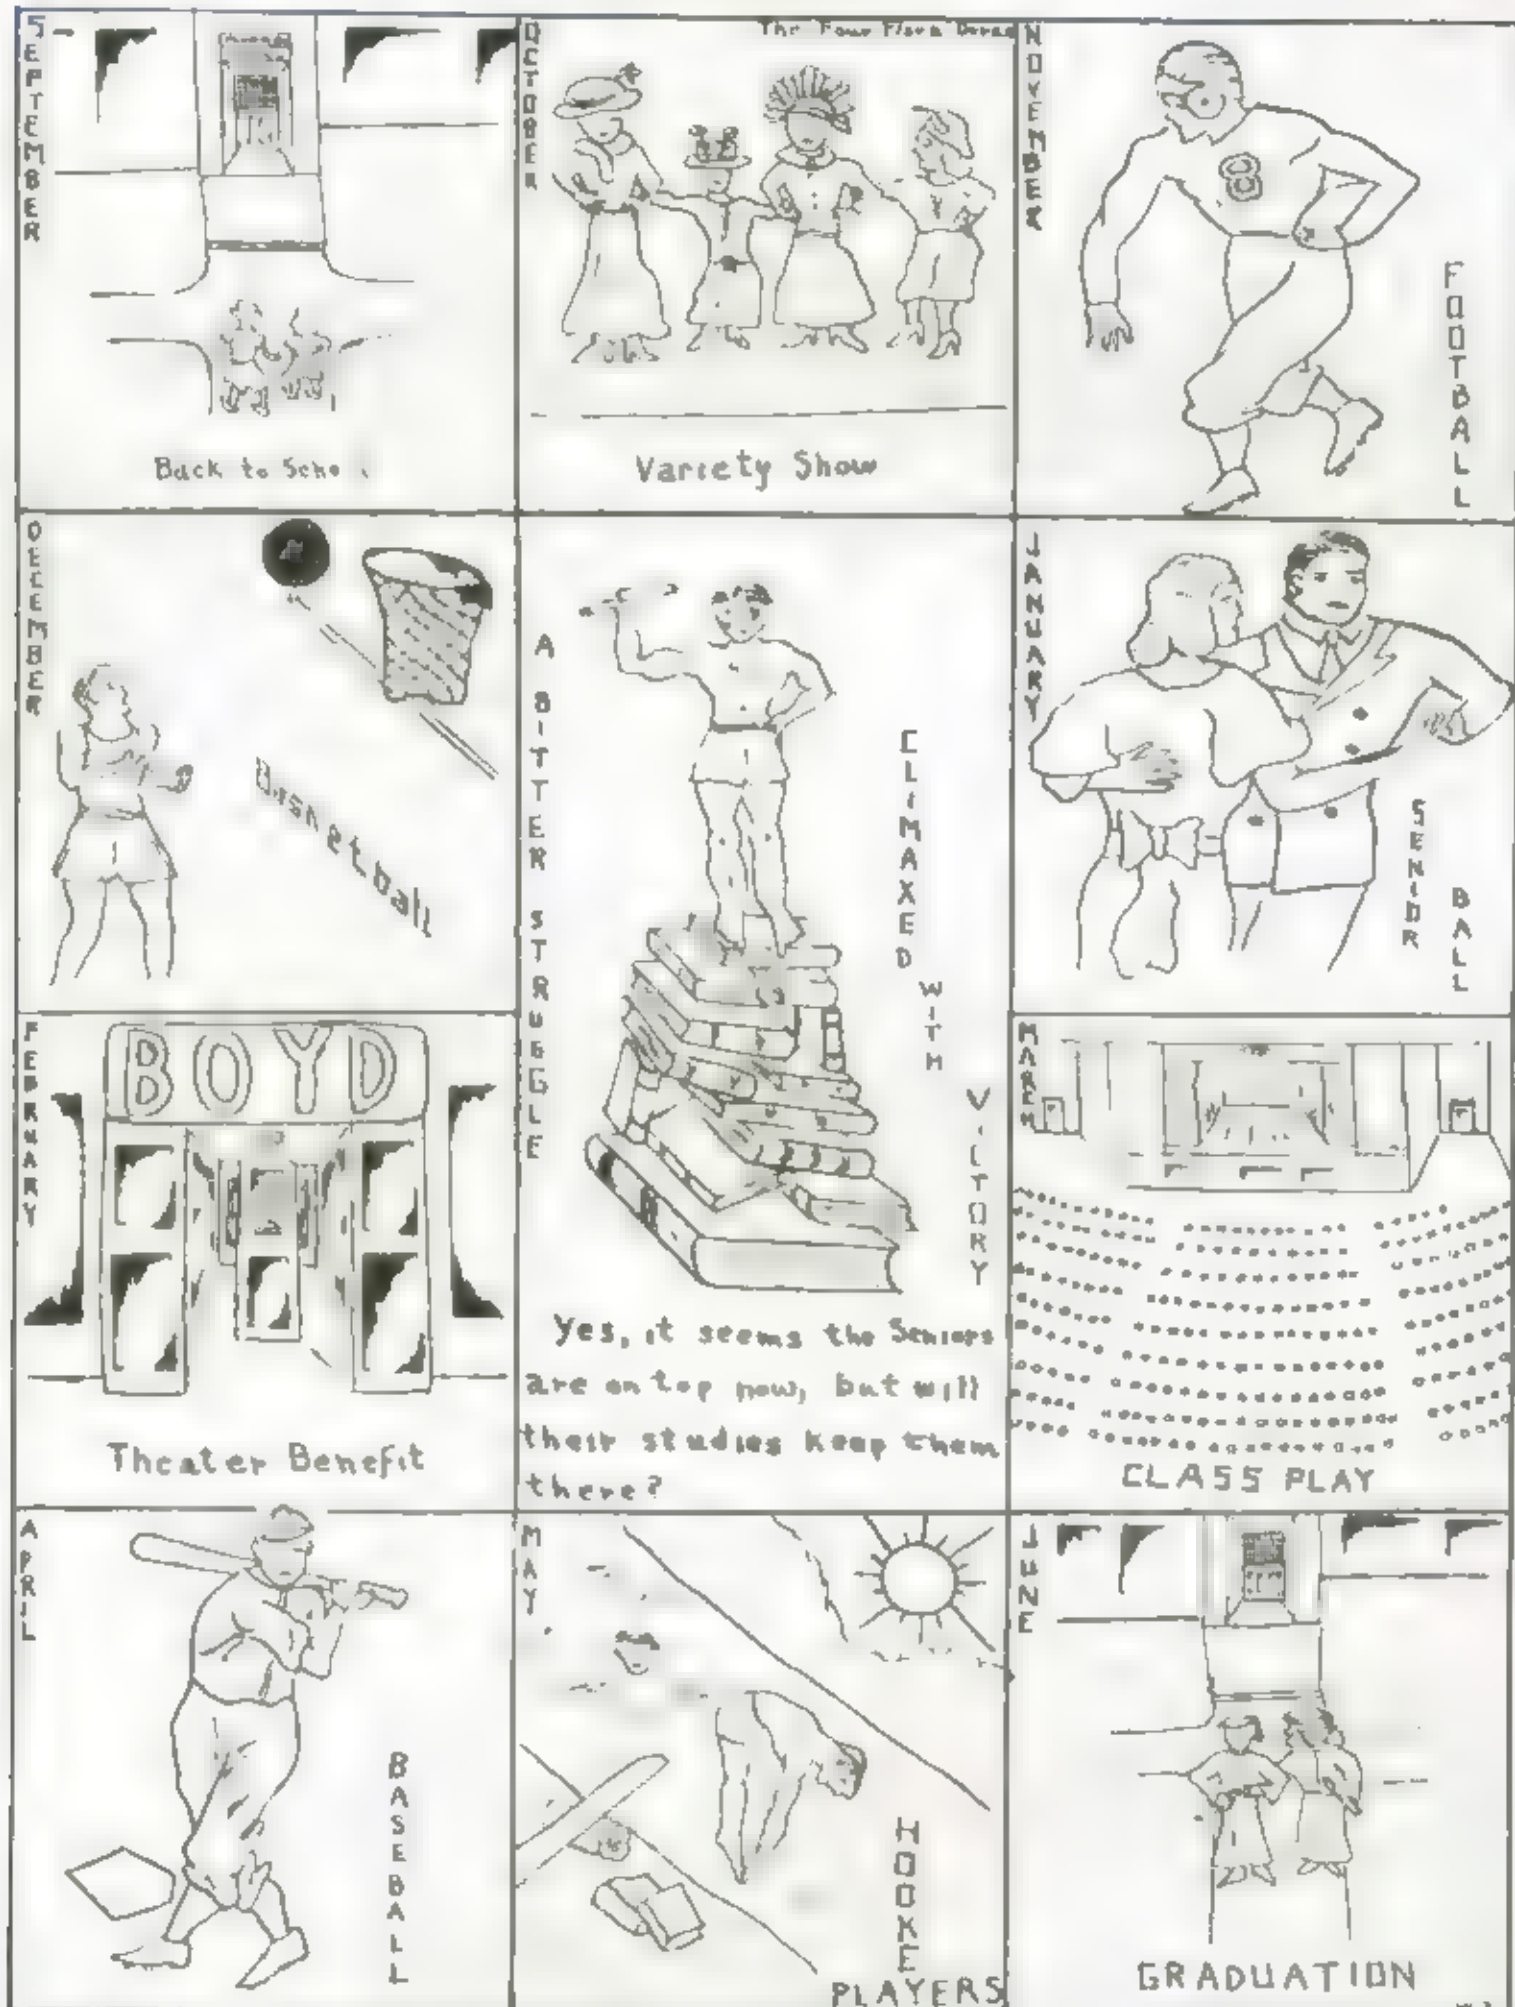 SEPTEMBER
Back to
OCTOBER
The Four Flora
Variety Show
NOVEMBER
FOOTBALL
DECEMBER
Basketball
A BITTER STRUGGLE
CLIMAXED WITH VICTORY
Yes, it seems the Seniors
are on top now, but will
their studies keep them
there?
JANUARY
SENIOR BALL
FEBRUARY
BOYD
Theater Benefit
MARCH
CLASS PLAY
APRIL
BASEBALL
MAY
HOOKE
PLAYERS
JUNE
GRADUATION